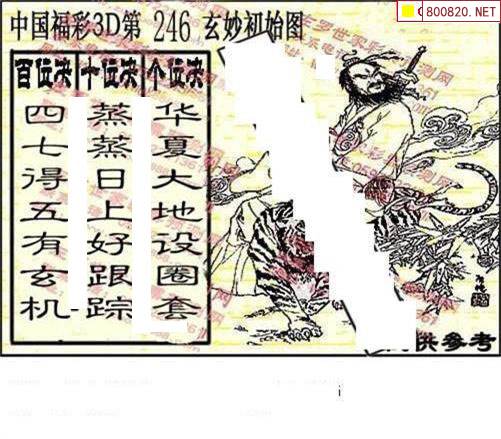 800820.NET
中国福彩3D第 246 玄妙初始图
百位决 十位决 个位决
四七得五有玄机
蒸蒸日上好跟踪
华夏大地设圈套
供参考
i